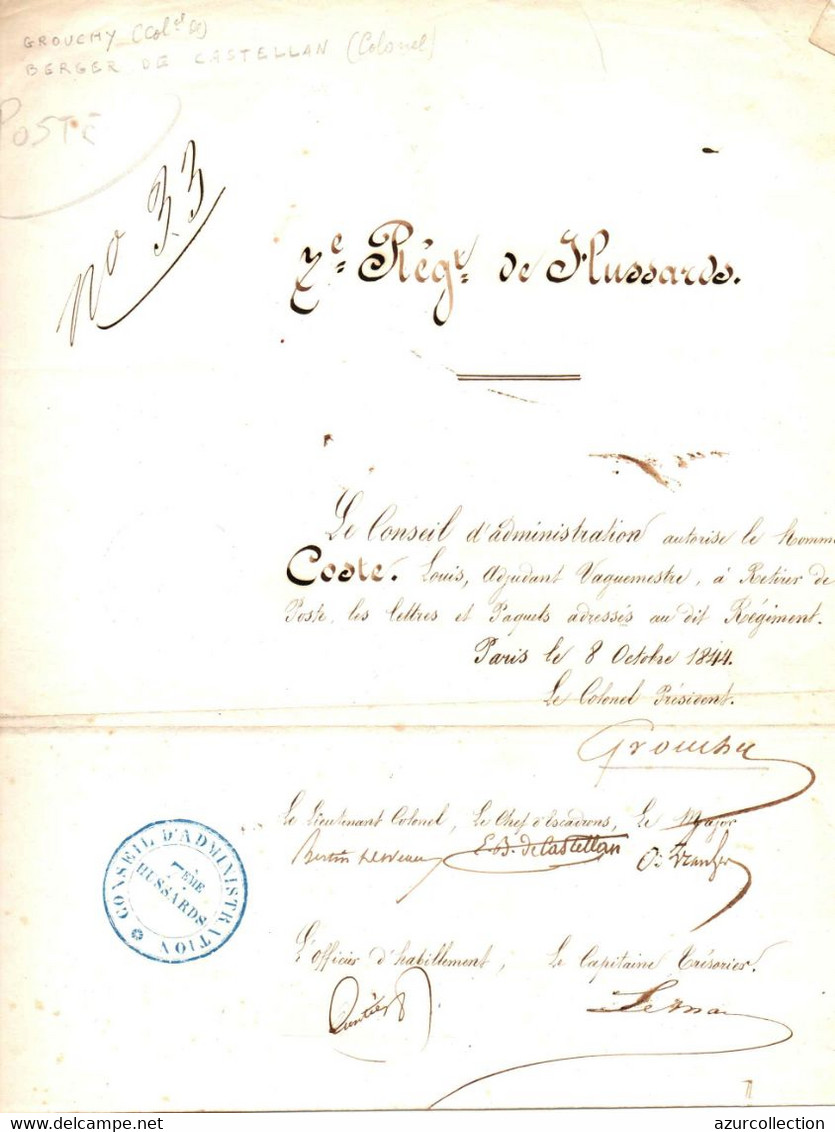 GROUCHY (Colel de)
BERGER DE CASTELLAN (Colonel)
POSTE
no 33
7e Régt de Hussards.
Le Conseil d'administration autorise le nommé
Coste. Louis, Adjudant Vaguemestre, à Retirer de
Poste, les lettres et Paquets adressés au dit Régiment.
Paris le 8 Octobre 1844.
Le Colonel Président.
Grouchy
Le Lieutenant Colonel, Le Chef d'Escadrons, Le Major
E. B. de Castellan
CONSEIL D'ADMINISTRATION
7EME
HUSSARDS
L'Officier d'habillement, Le Capitaine Trésorier.
delcampe.net
azurcollection